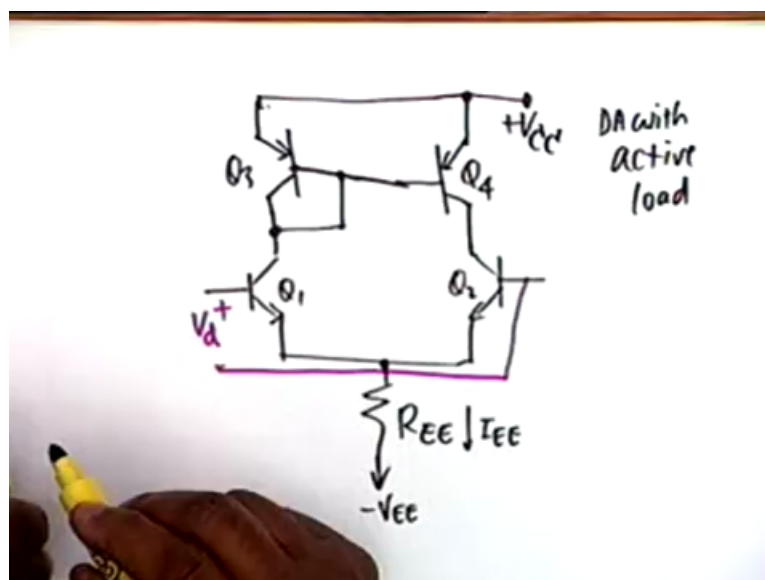 +VCC
DA with
active
load
Q3
Q4
Q1
Q2
Vd
+
REE
IEE
-VEE